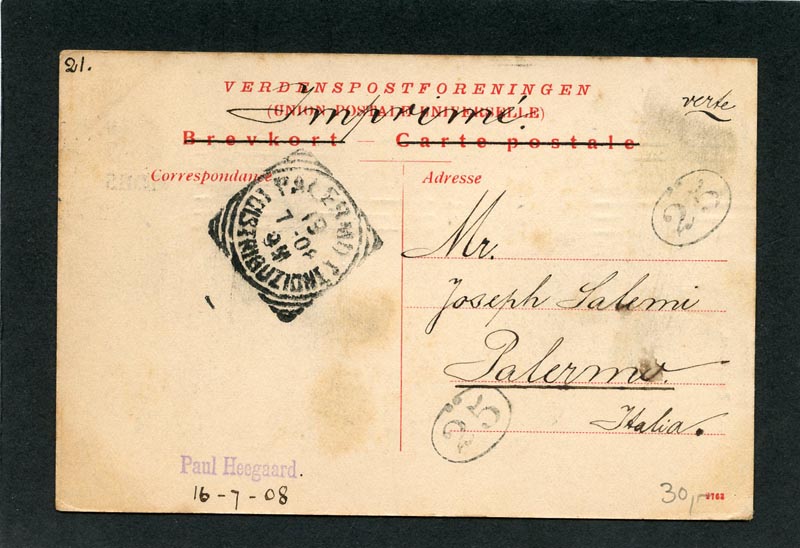 21.
VERDENSPOSTFORENINGEN
(UNION POSTALE UNIVERSELLE)
Imprimé.
verte
Brevkort — Carte postale
Correspondance
Adresse
PALERMO
19
7-08
9M
25
Mr.
Joseph Salemi
Palermo.
25
Italia.
Paul Heegaard.
16-7-08
30,-
2763